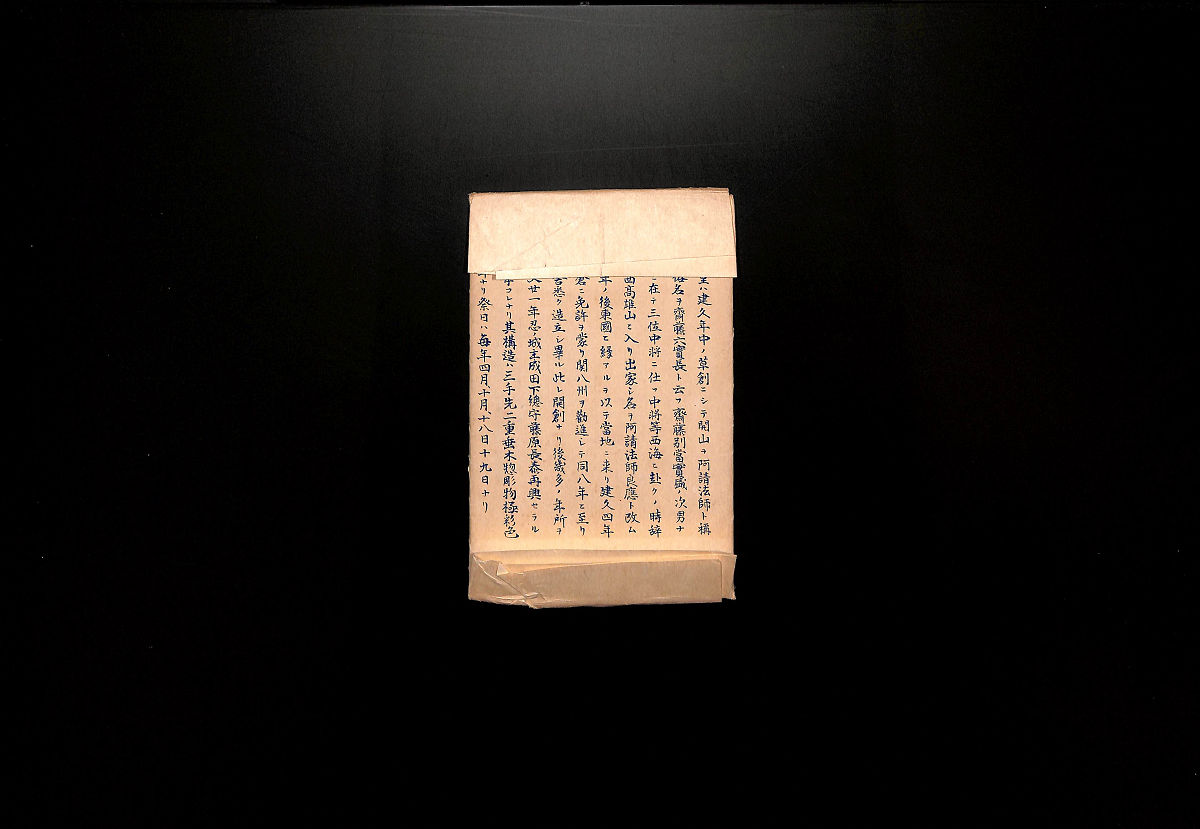 ハ建久年中ノ草創ニシテ開山ヲ阿請法師ト稱
名ヲ齋藤六實長ト云フ齋藤別當實盛ノ次男ナ
在テ三位中將ニ仕ヘ中將等西海ニ赴クノ時辞
西高雄山ニ入リ出家シ名ヲ阿請法師良應ト改ム
年ノ後東國ニ縁アルヲ以テ當地ニ来リ建久四年
倉ニ免許ヲ蒙リ関八州ヲ勸進シテ同八年ニ至リ
悉ク造立シ畢ル此レ開創ナリ後幾多ノ年所ヲ
廿一年忍ノ城主成田下總守藤原長泰再興セラル
コレナリ其構造ハ三手先二重垂木惣彫物極彩色
ナリ祭日ハ毎年四月、十月、十八日十九日ナリ